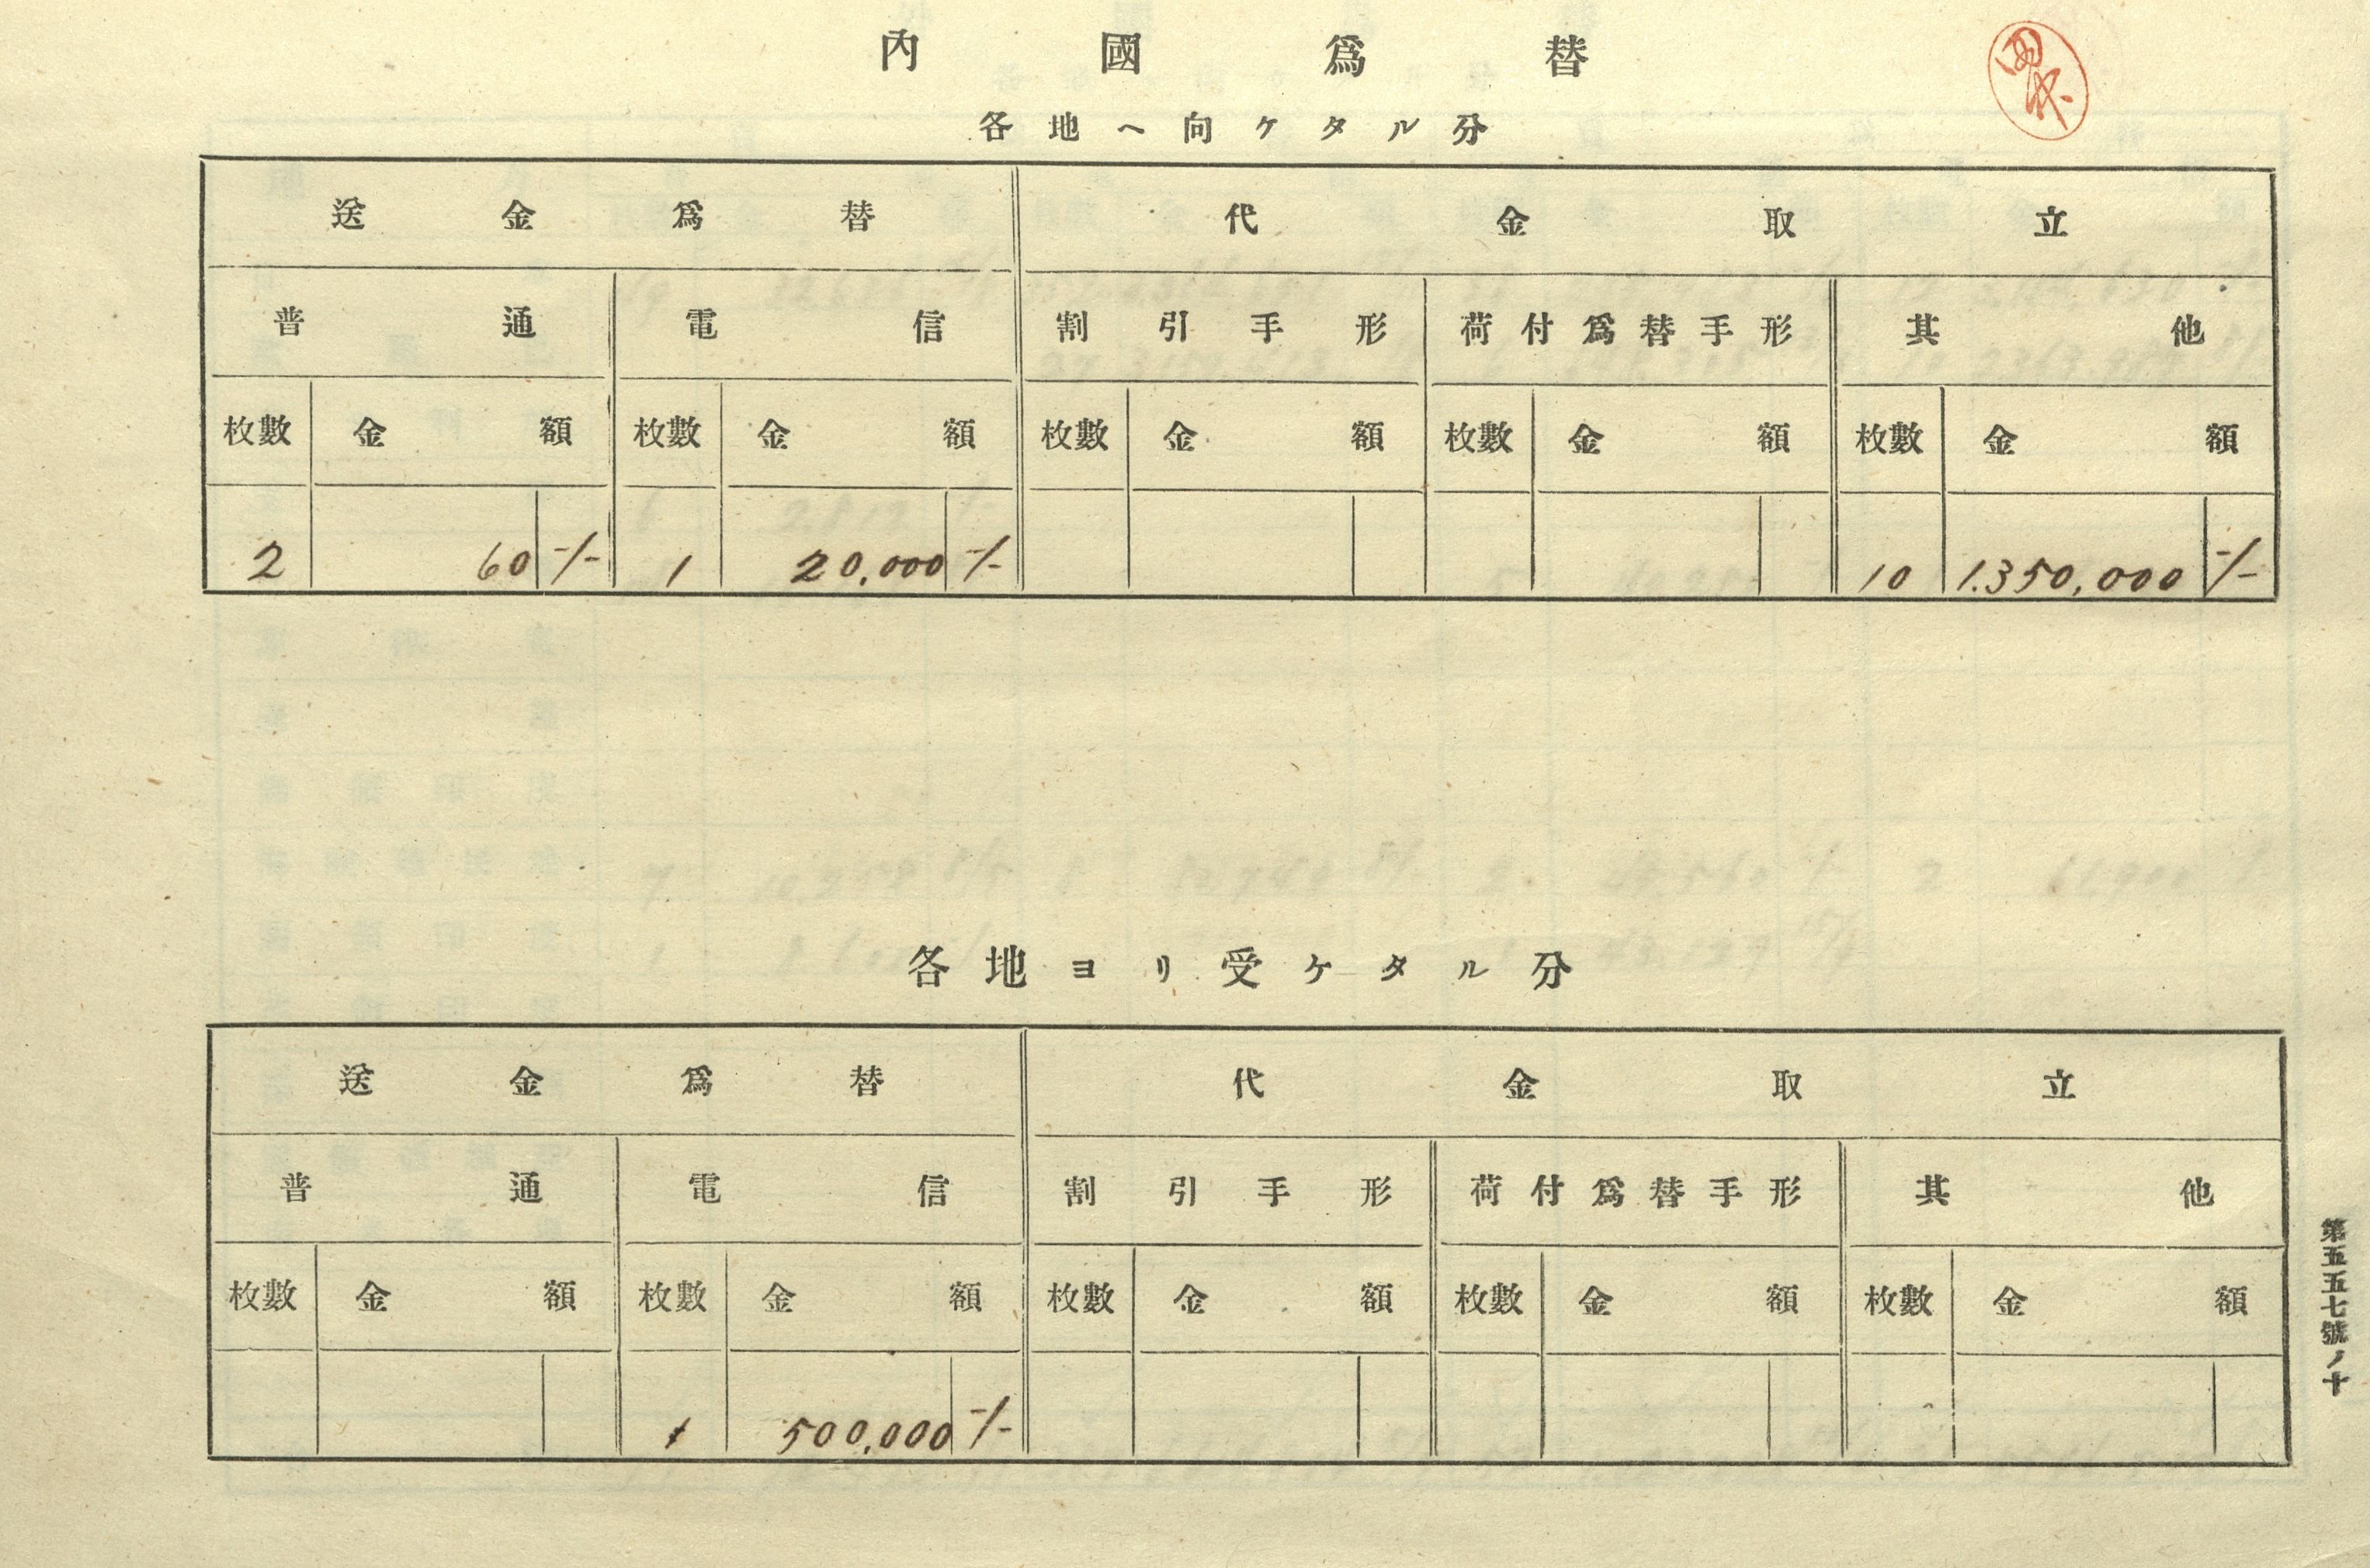 內國爲替
各地ヘ向ケタル分
送金爲替 代金取立
普通 電信 割引手形 荷付爲替手形 其他
枚數 金額 枚數 金額 枚數 金額 枚數 金額 枚數 金額
2 60 -/- 1 20,000 -/- 10 1.350,000 -/-
各地ヨリ受ケタル分
送金爲替 代金取立
普通 電信 割引手形 荷付爲替手形 其他
枚數 金額 枚數 金額 枚數 金額 枚數 金額 枚數 金額
1 500,000 -/-
第五五七號ノ十